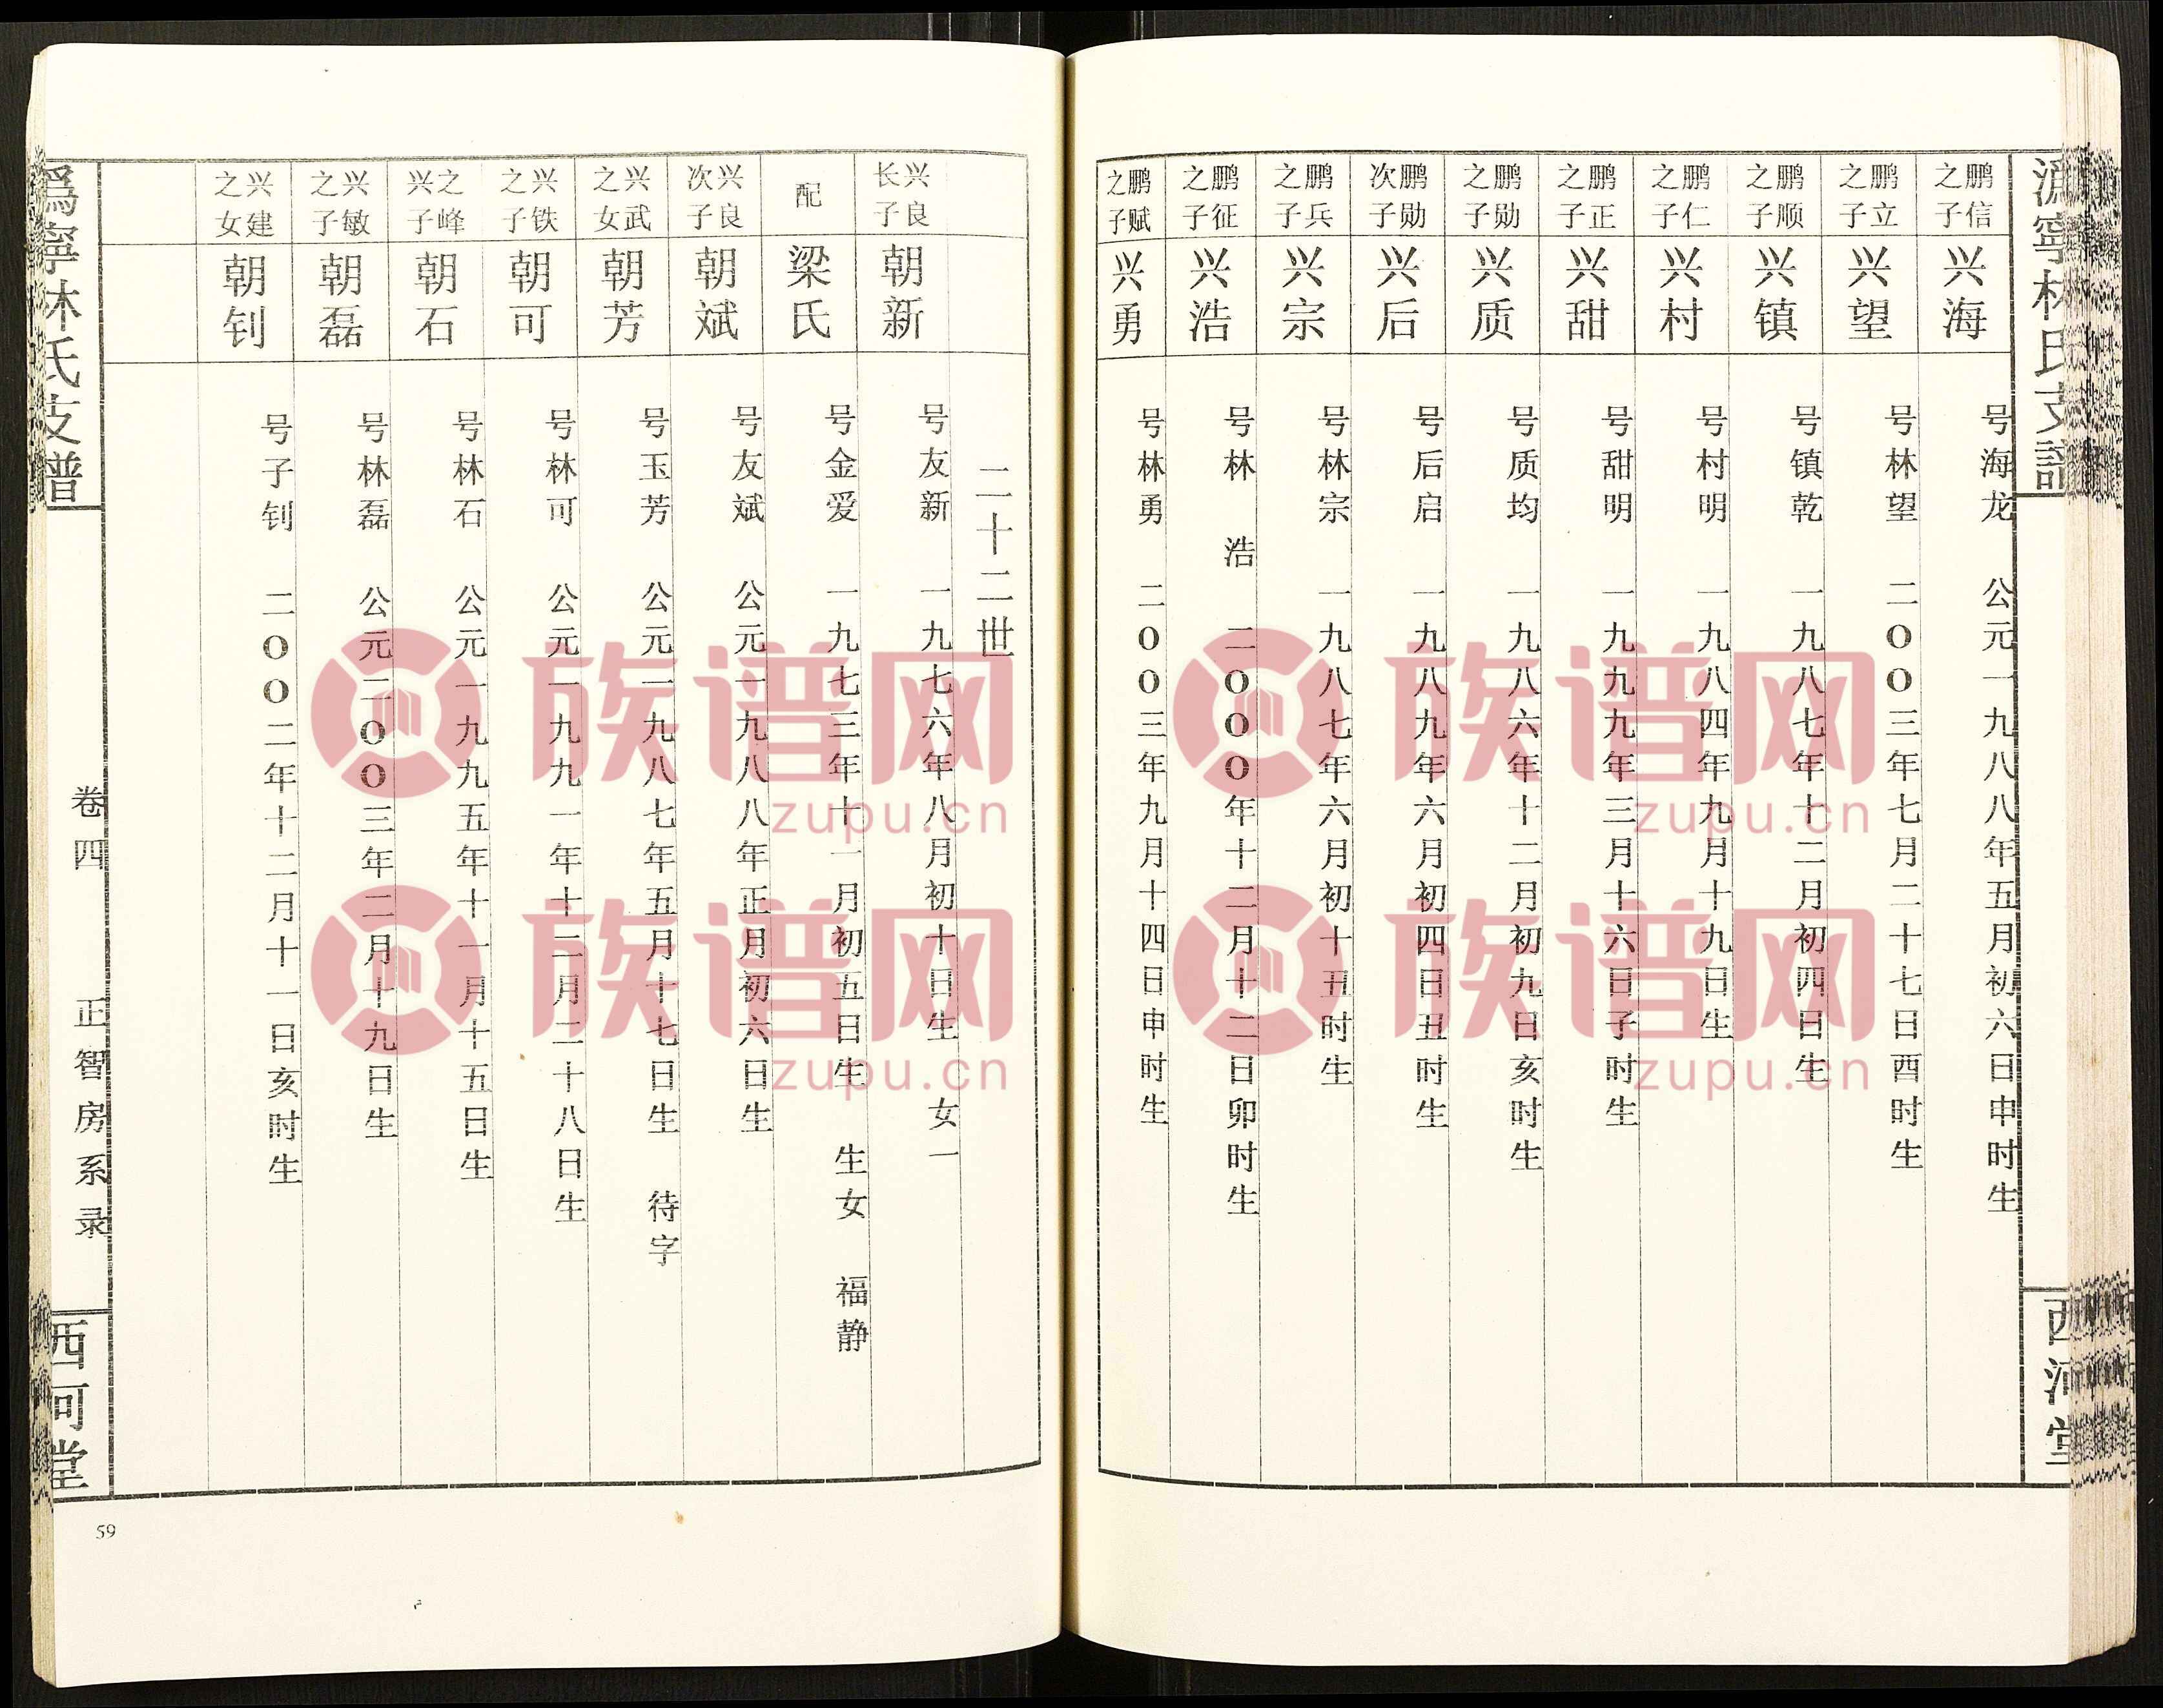 沩寧林氏支譜
西河堂
鹏信之子
兴海
号海龙 公元一九八八年五月初六日申时生
鹏立之子
兴望
号林望 二〇〇三年七月二十七日酉时生
鹏顺之子
兴镇
号镇乾 一九八七年十二月初四日生
鹏仁之子
兴村
号村明 一九八四年九月十九日生
鹏正之子
兴甜
号甜明 一九九九年三月十六日子时生
鹏勋之子
兴质
号质均 一九八六年十二月初九日亥时生
鹏勋次子
兴后
号后启 一九八九年六月初四日丑时生
鹏兵之子
兴宗
号林宗 一九八七年六月初十丑时生
鹏征之子
兴浩
号林 浩 二〇〇〇年十二月十二日卯时生
鹏赋之子
兴勇
号林勇 二〇〇三年九月十四日申时生
二十二世
兴良长子
朝新
号友新 一九七六年八月初十日生 女一
配
梁氏
号金爱 一九七三年十一月初五日生 生女 福静
兴良次子
朝斌
号友斌 公元一九八八年正月初六日生
兴武之女
朝芳
号玉芳 公元一九八七年五月十七日生 待字
兴铁之子
朝可
号林可 公元一九九一年十二月二十八日生
之峰兴子
朝石
号林石 公元一九九五年十一月十五日生
兴敏之子
朝磊
号林磊 公元二〇〇三年二月十九日生
兴建之女
朝钊
号子钊 二〇〇二年十二月十一日亥时生
爲寧林氏支譜
卷四 正智房系录
西河堂
59
族谱网
zupu.cn
族谱网
zupu.cn
族谱网
zupu.cn
族谱网
zupu.cn